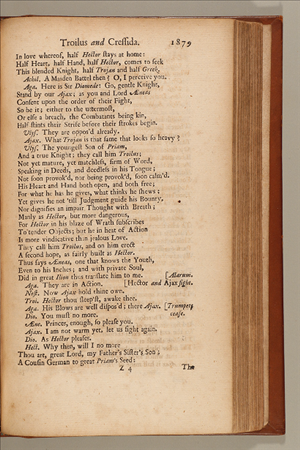 Troilus and Cressida. 1879
In love whereof, half Hector stays at home:
Half Heart, half Hand, half Hector, comes to seek
This blended Knight, half Trojan and half Greek.
Achil. A Maiden Battel then? O, I perceive you.
Aga. Here is Sir Diomede: Go, gentle Knight,
Stand by our Ajax; as you and Lord Æneas
Consent upon the order of their Fight,
So be it; either to the uttermost,
Or else a breath, the Combatants being kin,
Half stints their Strife before their strokes begin.
Ulys. They are oppos'd already.
Ajax. What Trojan is that same that looks so heavy?
Ulys. The youngest Son of Priam,
And a true Knight; they call him Troilus;
Not yet mature, yet matchless, firm of Word,
Speaking in Deeds, and deedless in his Tongue;
Not soon provok'd, nor being provok'd, soon calm'd.
His Heart and Hand both open, and both free;
For what he has he gives, what thinks he shews;
Yet gives he not 'till Judgment guide his Bounty,
Nor dignifies an impair Thought with Breath;
Manly as Hector, but more dangerous,
For Hector in his blaze of Wrath subscribes
To tender Objects; but he in heat of Action
Is more vindicative than jealous Love.
They call him Troilus, and on him erect
A second hope, as fairly built as Hector.
Thus says Æneas, one that knows the Youth,
Even to his Inches; and with private Soul,
Did in great Ilion thus translate him to me. [Alarum.
Aga. They are in Action. [Hector and Ajax fight.
Nest. Now Ajax hold thine own.
Troi. Hector thou sleep'st, awake thee.
Aga. His Blows are well dispos'd; there Ajax. [Trumpets
Dio. You must no more. cease.
Æne. Princes, enough, so please you.
Ajax. I am not warm yet, let us fight again.
Dio. As Hector pleases.
Hect. Why then, will I no more
Thou art, great Lord, my Father's Sister's Son;
A Cousin German to great Priam's Seed:
Z 4 The